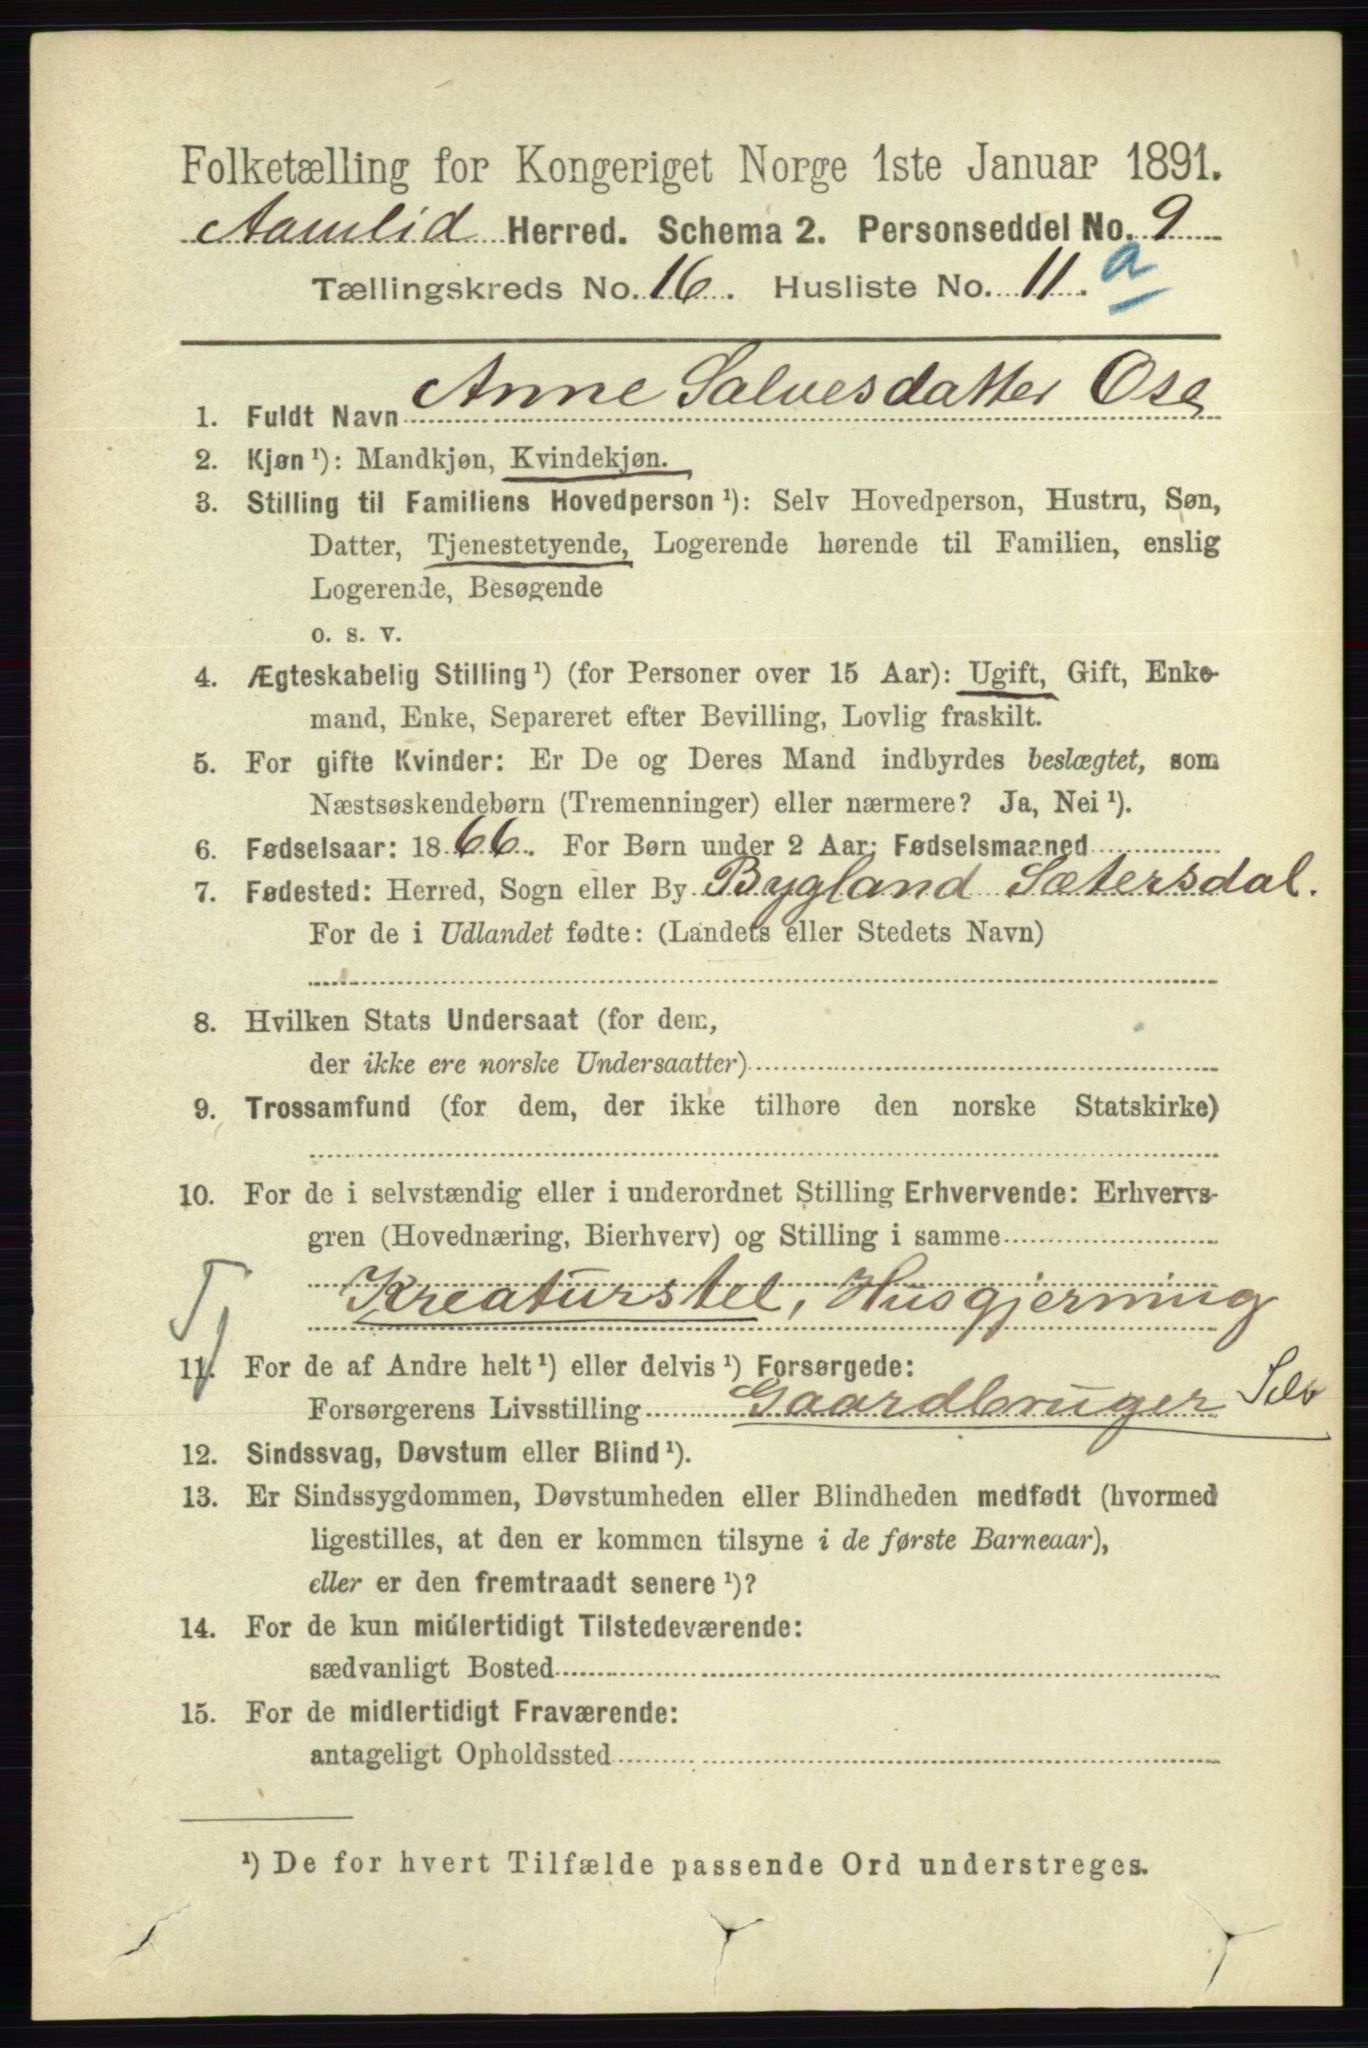 Folketælling for Kongeriget Norge 1ste Januar 1891.
Aamlid Herred. Schema 2. Personseddel No. 9
Tællingskreds No. 16. Husliste No. 11. a
1. Fuldt Navn Anne Salvesdatter Ose
2. Kjøn ¹): Mandkjøn, Kvindekjøn.
3. Stilling til Familiens Hovedperson ¹): Selv Hovedperson, Hustru, Søn,
Datter, Tjenestetyende, Logerende hørende til Familien, enslig
Logerende, Besøgende
o. s. v.
4. Ægteskabelig Stilling ¹) (for Personer over 15 Aar): Ugift, Gift, Enke-
mand, Enke, Separeret efter Bevilling, Lovlig fraskilt.
5. For gifte Kvinder: Er De og Deres Mand indbyrdes beslægtet, som
Næstsøskendebørn (Tremenninger) eller nærmere? Ja, Nei ¹).
6. Fødselsaar: 1866. For Børn under 2 Aar: Fødselsmaaned
7. Fødested: Herred, Sogn eller By Bygland Sætersdal.
For de i Udlandet fødte: (Landets eller Stedets Navn)
8. Hvilken Stats Undersaat (for dem,
der ikke ere norske Undersaatter)
9. Trossamfund (for dem, der ikke tilhøre den norske Statskirke)
10. For de i selvstændig eller i underordnet Stilling Erhvervende: Erhvervs-
gren (Hovednæring, Bierhverv) og Stilling i samme
Kreaturstel, Husgjerning
Tj
11. For de af Andre helt ¹) eller delvis ¹) Forsørgede:
Forsørgerens Livsstilling Gaardbruger Selv
12. Sindssvag, Døvstum eller Blind ¹).
13. Er Sindssygdommen, Døvstumheden eller Blindheden medfødt (hvormed
ligestilles, at den er kommen tilsyne i de første Barneaar),
eller er den fremtraadt senere ¹)?
14. For de kun midlertidigt Tilstedeværende:
sædvanligt Bosted
15. For de midlertidigt Fraværende:
antageligt Opholdssted
¹) De for hvert Tilfælde passende Ord understreges.